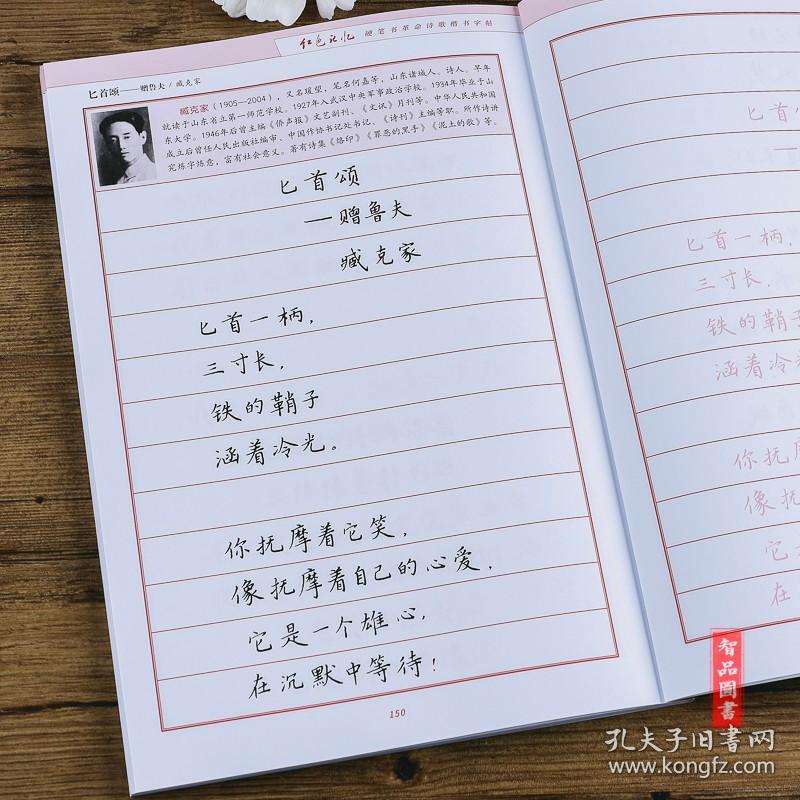 红色记忆 硬笔书革命诗歌楷书字帖
匕首颂——赠鲁夫 / 臧克家
臧克家（1905—2004），又名瑗望，笔名何嘉等，山东诸城人。诗人。早年
就读于山东省立第一师范学校。1927年入武汉中央军事政治学校。1934年毕业于山
东大学。1946年后曾主编《侨声报》文艺副刊、《文讯》月刊等。中华人民共和国
成立后曾任人民出版社编审、中国作协书记处书记、《诗刊》主编等职。所作诗讲
究炼字炼意，富有社会意义。著有诗集《烙印》《罪恶的黑手》《泥土的歌》等。
匕首颂
—赠鲁夫
臧克家
匕首一柄，
三寸长，
铁的鞘子
涵着冷光。
你抚摩着它笑，
像抚摩着自己的心爱，
它是一个雄心，
在沉默中等待！
150
匕首
匕首一柄，
三寸长，
铁的鞘子
涵着冷光
你抚摩
像抚摩
它是
在
智品圖書
孔夫子旧书网
www.kongfz.com